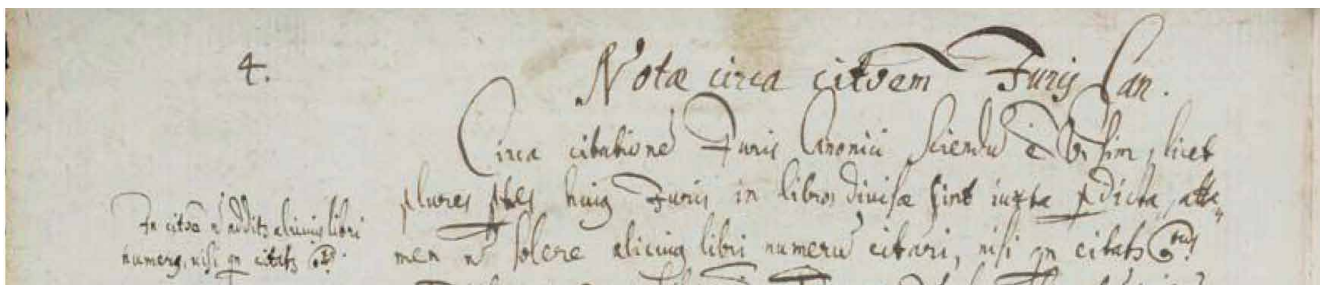 4.
Notæ circa citõem Juris Can.
Circa citationẽ Juris Canonici sciendũ ẽ licet
plures ptes huiq Juris in libros divisæ sint iuxta pdicta, atta„
men ñ solere alicuiq libri numerũ citari, nisi qn citatz
In citõe ñ additz alicuiq libri
numerq, nisi qn citatz